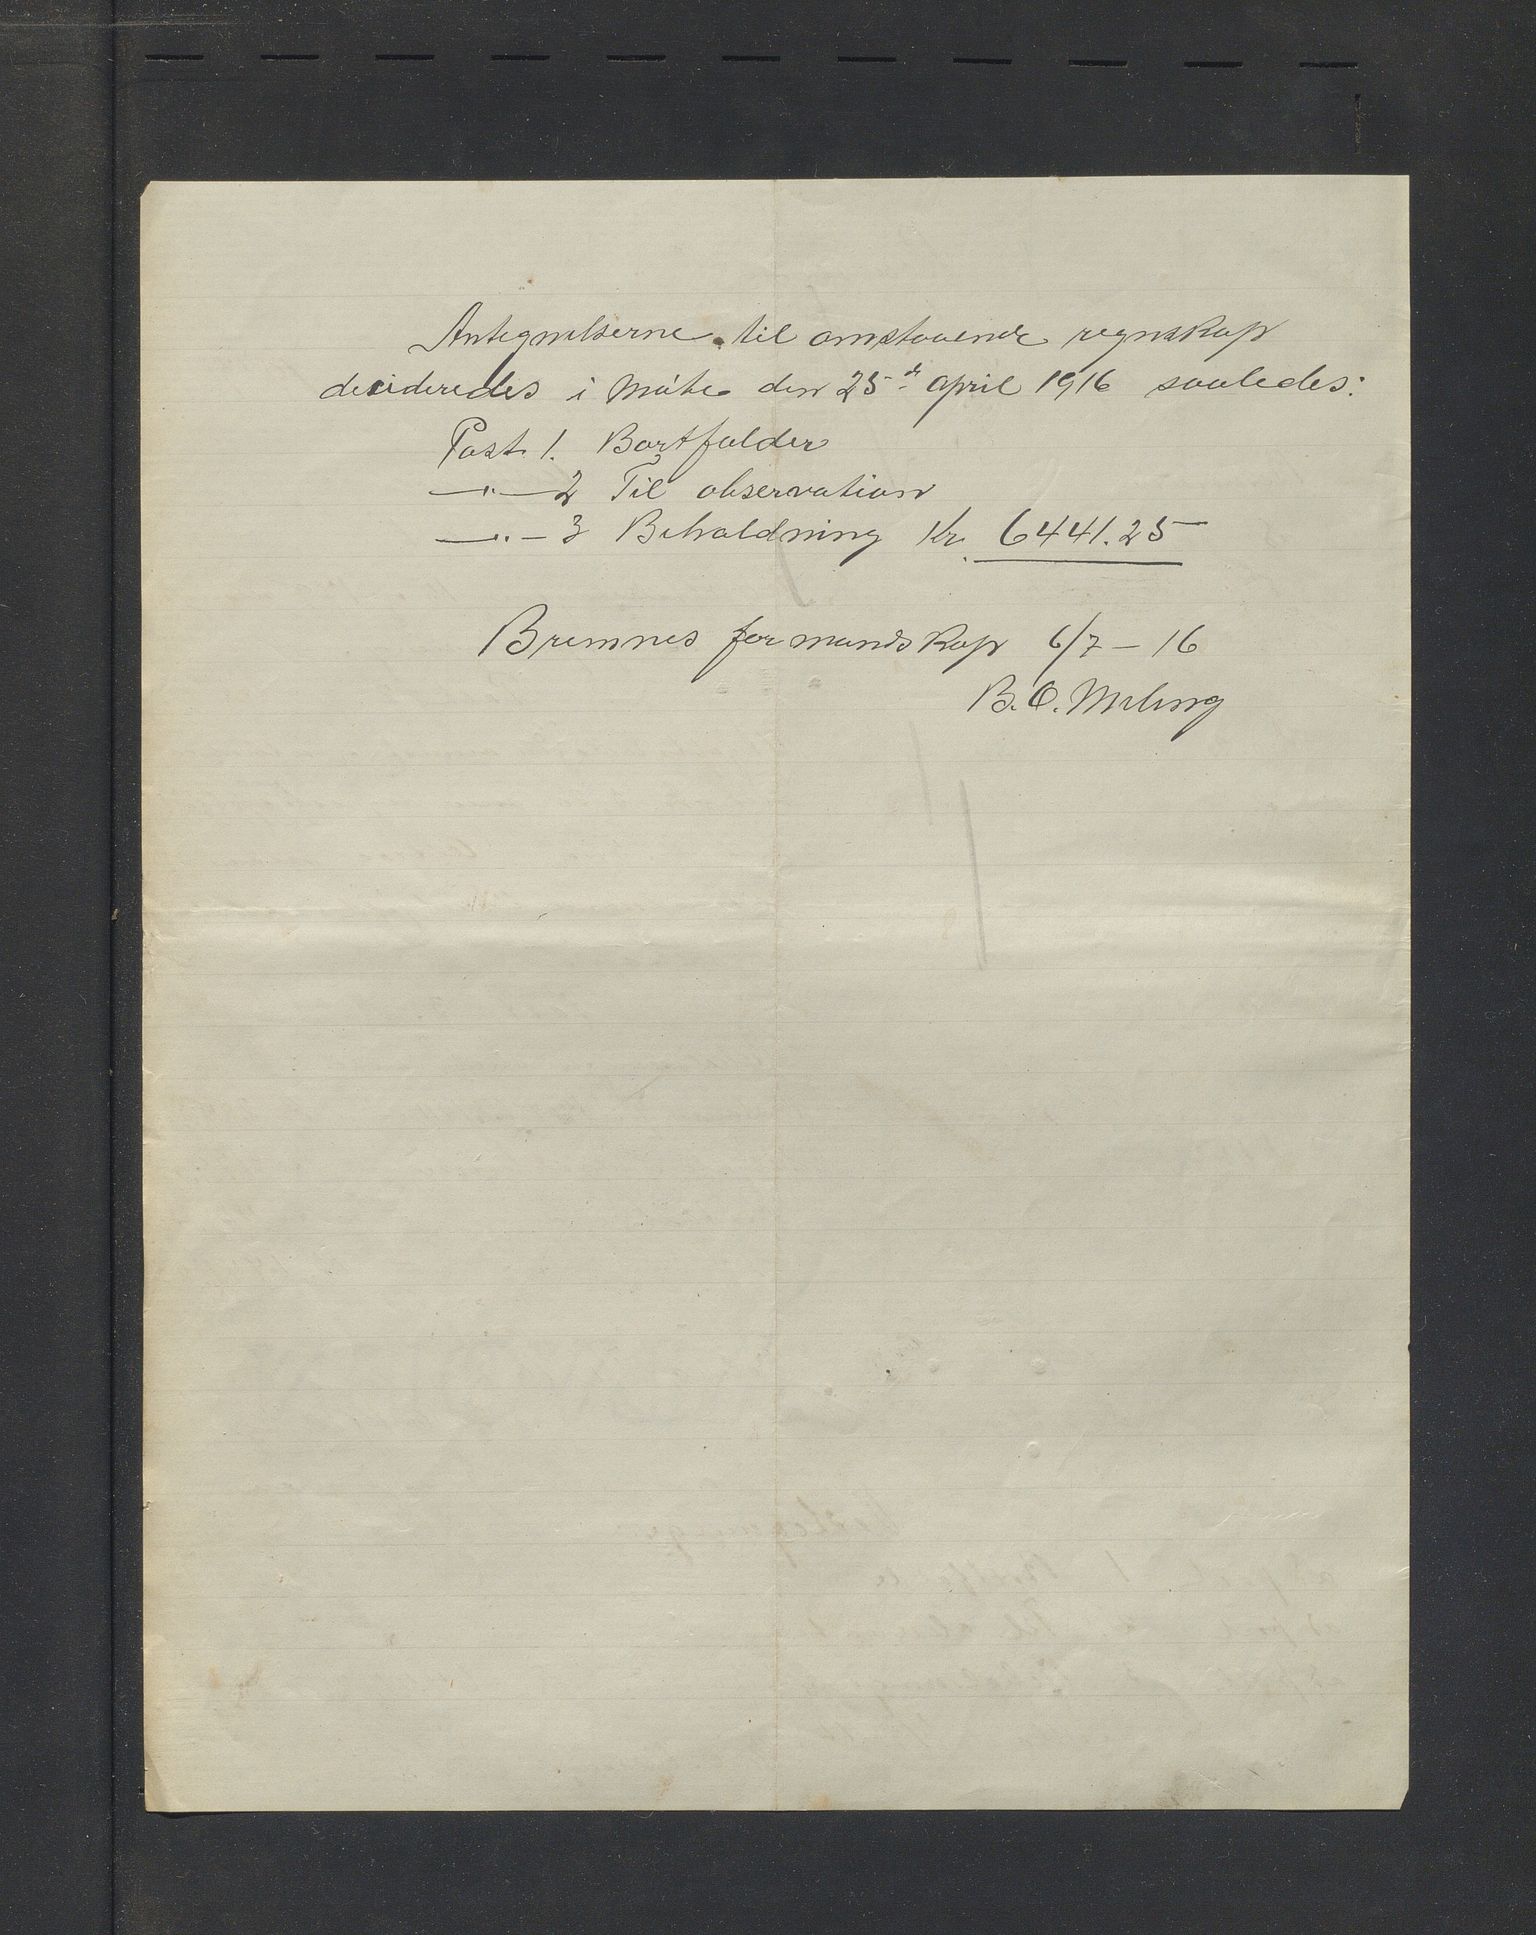 Antegnelserne til omstaaende regnskap
desideredes i møte den 25de april 1916 saaledes:
Post. 1. Bortfalder
—"— 2 Til observation
—"— 3 Beholdning Kr. 6441.25
Bremnes formandskap 6/7 – 16
B. O. Meling